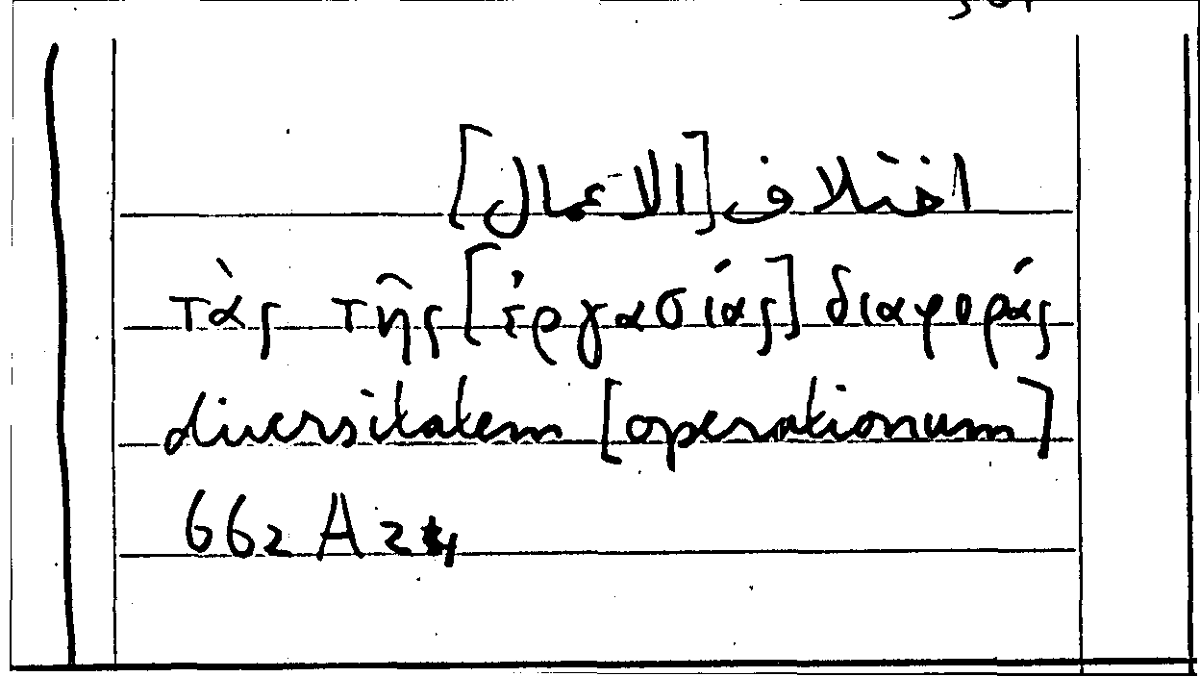 اختلاف [الاعمال]
τὰς τῆς [ἐργασίας] διαφοράς
diversitatem [operationum]
662 A 24